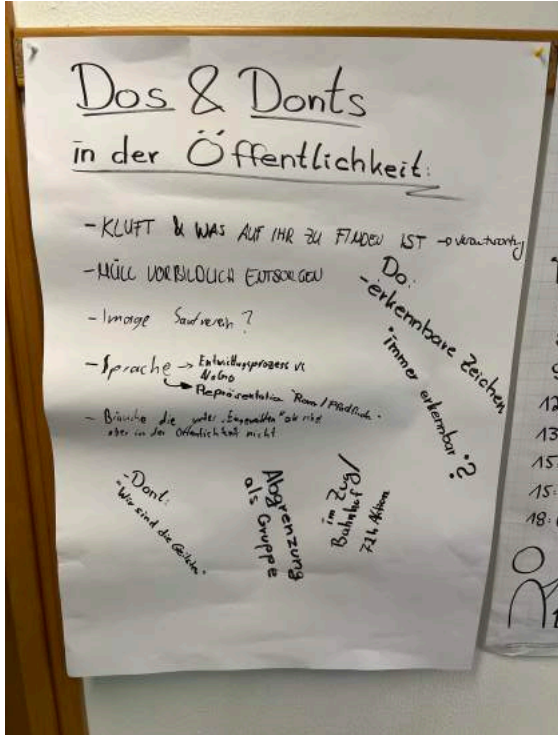 Dos & Donts
in der Öffentlichkeit:
- KLUFT & WAS AUF IHR ZU FINDEN IST → Verantwortung
- MÜLL VORBILDLICH ENTSORGEN
- Image Saufverein?
- Sprache → Entwicklungsprozess vs
NoGo
→ Repräsentation "Rover/Pfadfinder"
- Bräuche die unter "Eingeweihten" okay sind
aber in der Öffentlichkeit nicht
Do:
- erkennbare Zeichen
"immer erkennbar"?
- Dont:
"Wir sind die Geilsten"
Abgrenzung
als Gruppe
im Zug/
Bahnhof
72h Aktion
12
13
15:
15:
18: